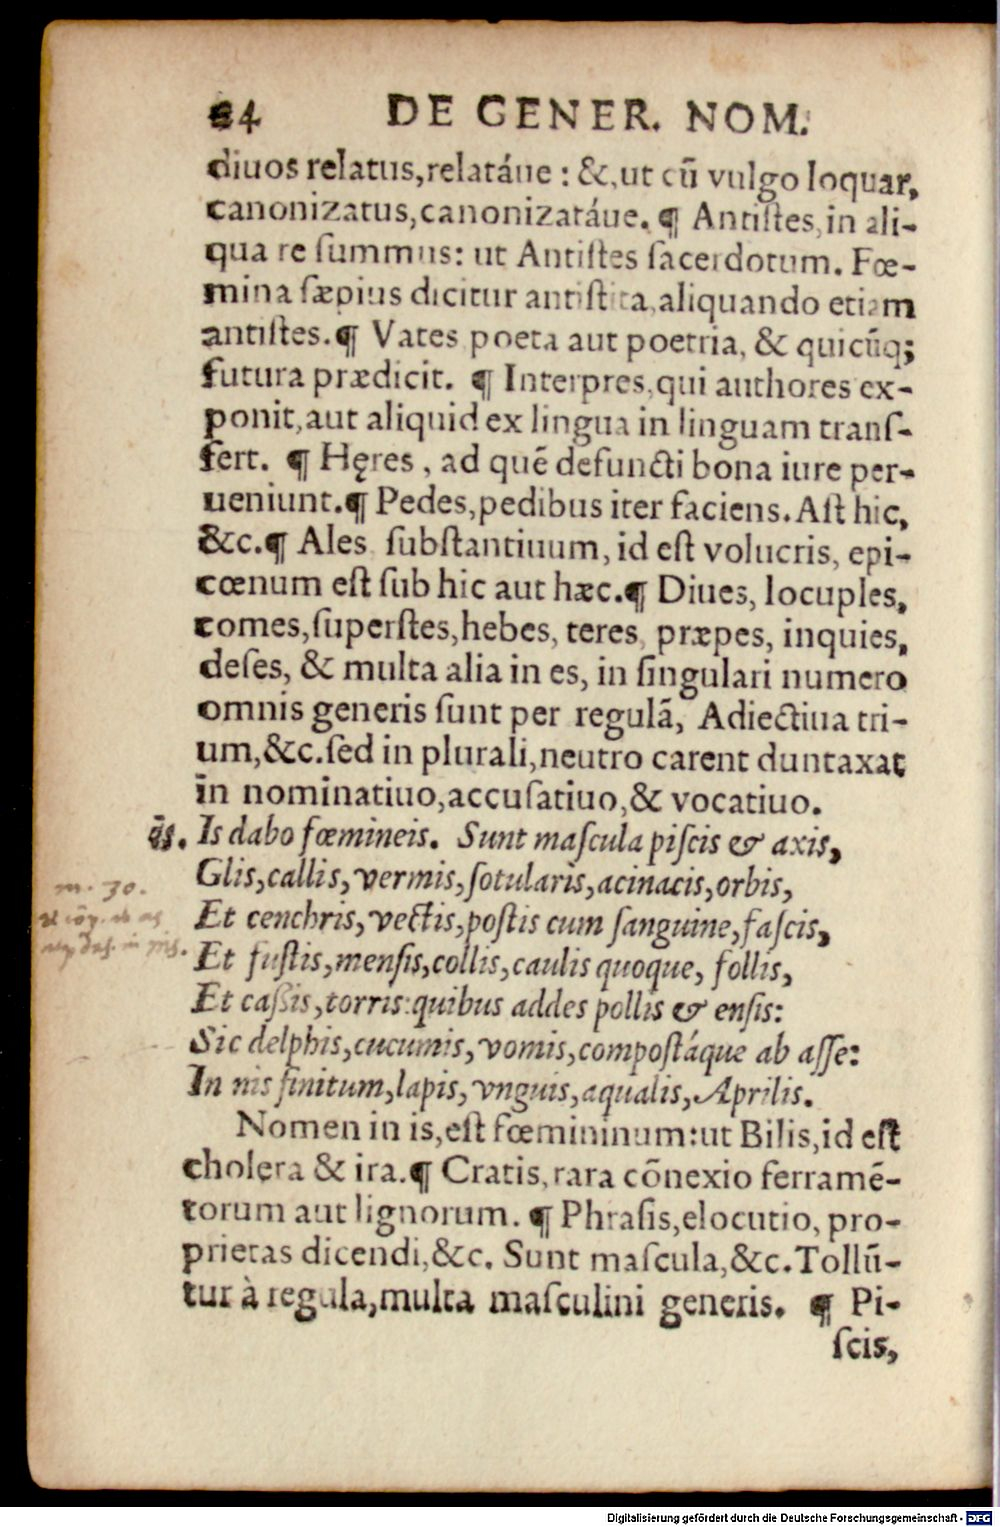 84 DE GENER. NOM.
diuos relatus,relatáue : &,ut cū vulgo loquar,
canonizatus,canonizatáue. ¶ Antiſtes,in ali-
qua re ſummus: ut Antiſtes ſacerdotum. Fœ-
mina ſæpius dicitur antiſtita,aliquando etiam
antiſtes.¶ Vates poeta aut poetria, & quicūq;
futura prædicit. ¶ Interpres,qui authores ex-
ponit,aut aliquid ex lingua in linguam tranſ-
fert. ¶ Hęres , ad quē defuncti bona iure per-
ueniunt.¶ Pedes,pedibus iter faciens. Aſt hic,
&c.¶ Ales ſubſtantiuum, id eſt volucris, epi-
cœnum eſt ſub hic aut hæc.¶ Diues, locuples,
comes,ſuperſtes,hebes, teres, præpes, inquies,
deſes, & multa alia in es, in ſingulari numero
omnis generis ſunt per regulā, Adiectiua tri-
um,&c.ſed in plurali,neutro carent duntaxat
in nominatiuo,accuſatiuo,& vocatiuo.
Is dabo fœmineis. Sunt maſcula piſcis & axis,
Glis,callis,vermis,ſotularis,acinacis,orbis,
m. 30.
Et cenchris,vectis,poſtis cum ſanguine,faſcis,
Et fuſtis,menſis,collis,caulis quoque, follis,
Et caßis,torris:quibus addes pollis & enſis:
Sic delphis,cucumis,vomis,compoſtáque ab aſſe:
In nis finitum,lapis,vnguis,aqualis,Aprilis.
Nomen in is,eſt fœmininum:ut Bilis,id eſt
cholera & ira.¶ Cratis,rara cōnexio ferramē-
torum aut lignorum. ¶ Phraſis,elocutio, pro-
prietas dicendi,&c. Sunt maſcula,&c.Tollū-
tur à regula,multa maſculini generis. ¶ Pi-
ſcis,
Digitalisierung gefördert durch die Deutsche Forschungsgemeinschaft - DFG